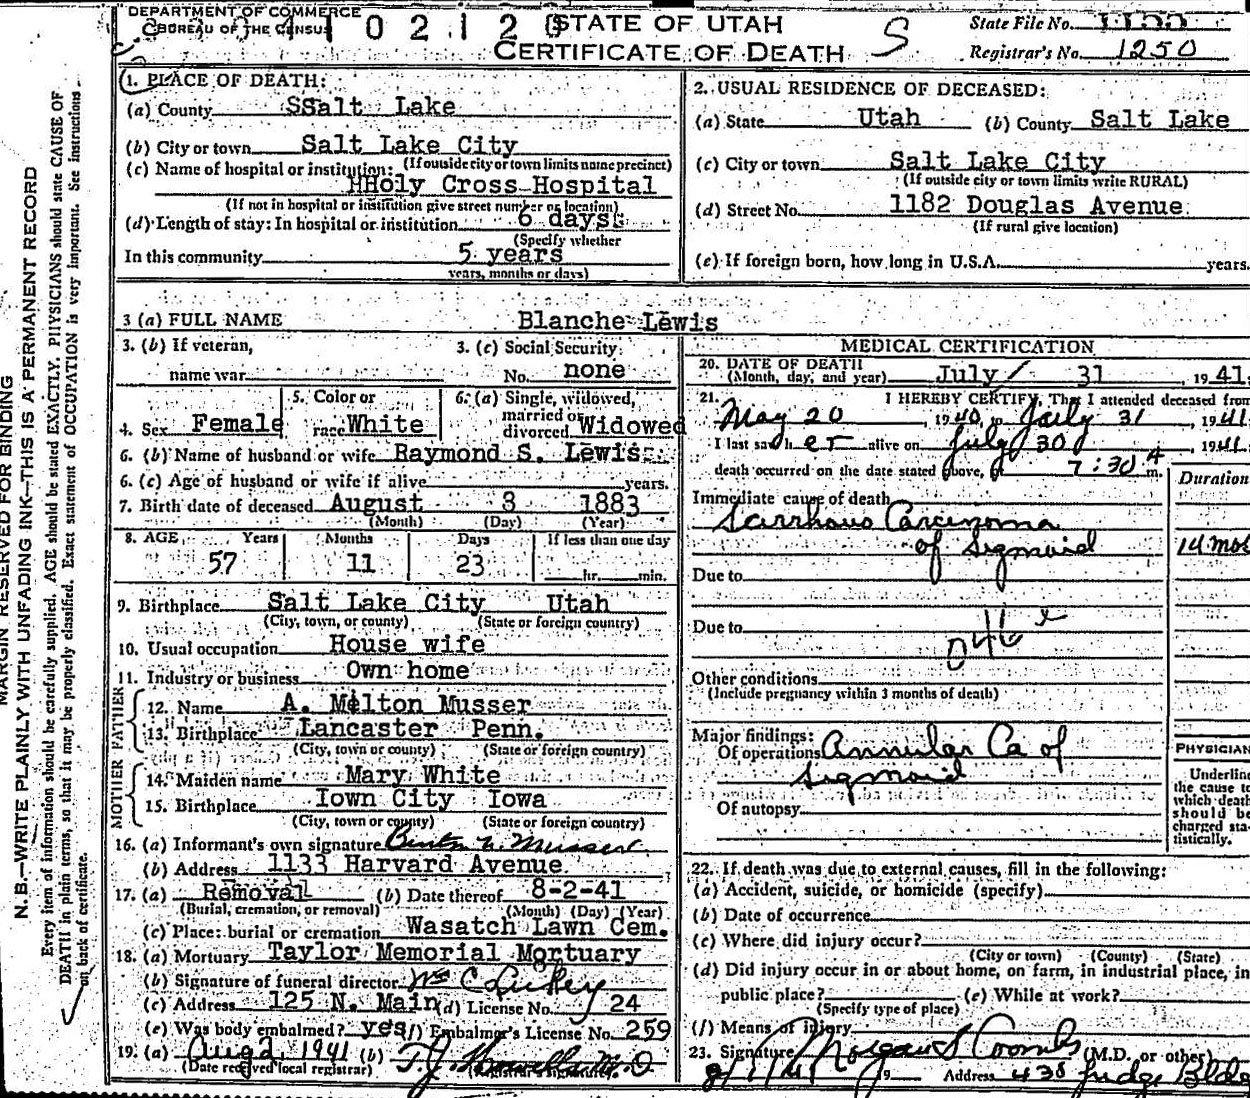 DEPARTMENT OF COMMERCE
BUREAU OF THE CENSUS
1 0 2 1 2
STATE OF UTAH
CERTIFICATE OF DEATH
S
State File No.
Registrar's No. 1250
MARGIN RESERVED FOR BINDING
N. B.—WRITE PLAINLY WITH UNFADING INK—THIS IS A PERMANENT RECORD
Every item of information should be carefully supplied. AGE should be stated EXACTLY. PHYSICIANS should state CAUSE OF
DEATH in plain terms, so that it may be properly classified. Exact statement of OCCUPATION is very important. See instructions
on back of certificate.
1. PLACE OF DEATH:
(a) County SSalt Lake
(b) City or town Salt Lake City
(If outside city or town limits name precinct)
(c) Name of hospital or institution:
HHoly Cross Hospital
(If not in hospital or institution give street number or location)
(d) Length of stay: In hospital or institution 6 days
(Specify whether
In this community 5 years
years, months or days)
2. USUAL RESIDENCE OF DECEASED:
(a) State Utah (b) County Salt Lake
(c) City or town Salt Lake City
(If outside city or town limits write RURAL)
(d) Street No. 1182 Douglas Avenue
(If rural give location)
(e) If foreign born, how long in U.S.A. years.
3 (a) FULL NAME Blanche Lewis
3. (b) If veteran,
name war
3. (c) Social Security
No. none
4. Sex Female
5. Color or
race White
6. (a) Single, widowed,
married or
divorced Widowed
6. (b) Name of husband or wife Raymond S. Lewis
6. (c) Age of husband or wife if alive years.
7. Birth date of deceased August 8 1883
(Month) (Day) (Year)
8. AGE Years Months Days If less than one day
57 11 23
hr. min.
9. Birthplace Salt Lake City Utah
(City, town, or county) (State or foreign country)
10. Usual occupation House wife
11. Industry or business Own home
FATHER
12. Name A. Milton Musser
13. Birthplace Lancaster Penn.
(City, town or county) (State or foreign country)
MOTHER
14. Maiden name Mary White
15. Birthplace Iown City Iowa
(City, town or county) (State or foreign country)
16. (a) Informant's own signature Musser
(b) Address 1133 Harvard Avenue
17. (a) Removal (b) Date thereof 8-2-41
(Burial, cremation, or removal) (Month) (Day) (Year)
(c) Place: burial or cremation Wasatch Lawn Cem.
18. (a) Mortuary Taylor Memorial Mortuary
(b) Signature of funeral director Wm C
(c) Address 125 N. Main (d) License No. 24
(e) Was body embalmed? yes (f) Embalmer's License No. 259
19. (a) Aug 2, 1941 (b) T. J. Howells M.D
(Date received local registrar) (Registrar's signature)
MEDICAL CERTIFICATION
20. DATE OF DEATH
(Month, day, and year) July 31 , 1941.
21. I HEREBY CERTIFY, That I attended deceased from
May 20 , 1940, to July 31 , 1941
I last saw her alive on July 30 , 1941
death occurred on the date stated above, at 7:30 A m.
Duration
Immediate cause of death
Scirrhous Carcinoma
of Sigmoid 14 mos
Due to
Due to
046 e
Other conditions
(Include pregnancy within 3 months of death)
Major findings:
Of operations Annular Ca of
sigmoid
Of autopsy
PHYSICIAN
Underline
the cause to
which death
should be
charged sta-
tistically.
22. If death was due to external causes, fill in the following:
(a) Accident, suicide, or homicide (specify)
(b) Date of occurrence
(c) Where did injury occur?
(City or town) (County) (State)
(d) Did injury occur in or about home, on farm, in industrial place, in
public place? (e) While at work?
(Specify type of place)
(f) Means of injury
23. Signature Morgan S Coombs (M.D. or other)
8/1/41 19 Address 438 Judge Bldg